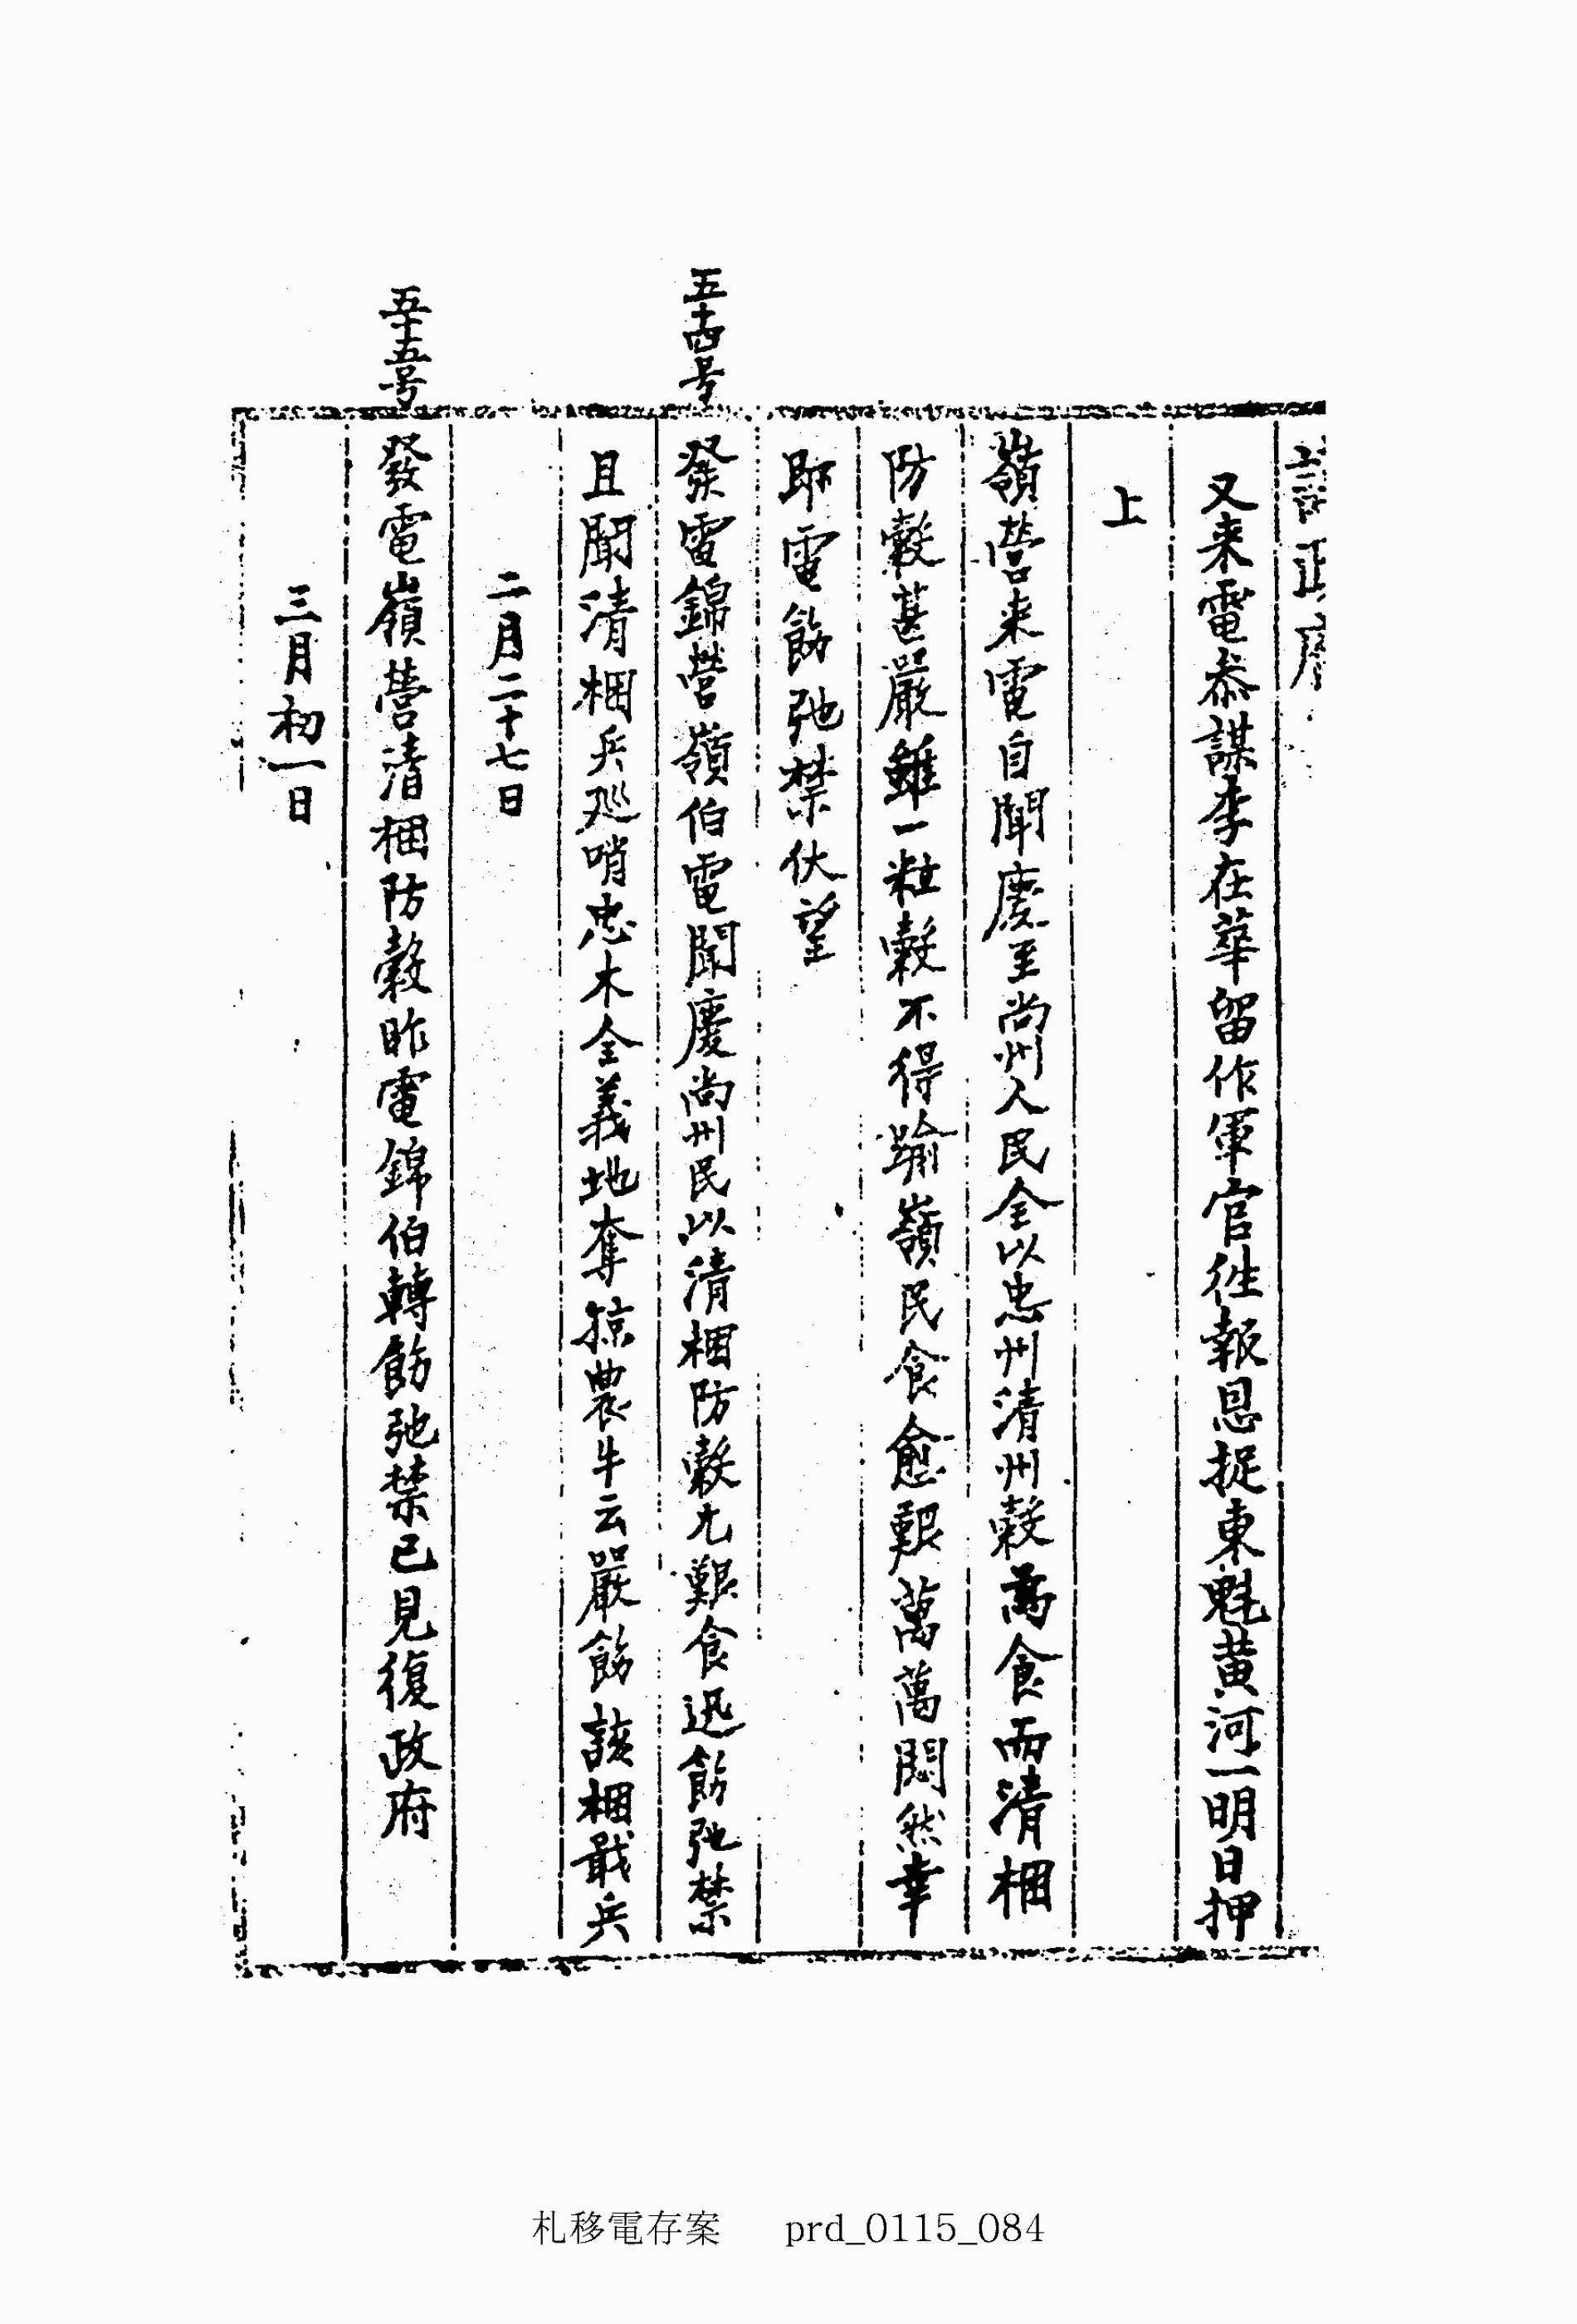 議政府
又来電叅謀李在華留作軍官徃報恩捉東魁黃河一明日押
上
嶺營来電自聞慶至尙州人民全以忠州清州糓爲食而清梱
防糓甚嚴雖一粒糓不得踰嶺民食愈艱萬萬悶然幸
卽電飭弛禁伏望
五十四号
發電錦營嶺伯電聞慶尙州民以清梱防糓尤艱食迅飭弛禁
且聞清梱兵廵哨忠木全義地奪掠農牛云嚴飭該梱戢兵
二月二十七日
五十五号
發電嶺營清梱防糓昨電錦伯轉飭弛禁已見復政府
三月初一日
札移電存案 prd_0115_084